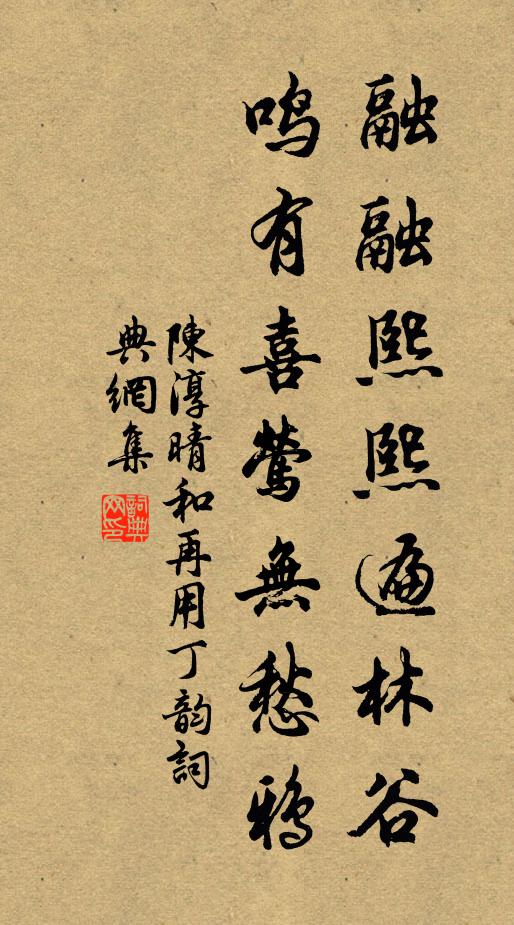 融融熙熙遍林谷
鸣有喜莺無愁鸦
陳淳晴和再用丁韵詞
典網集
詞典網印